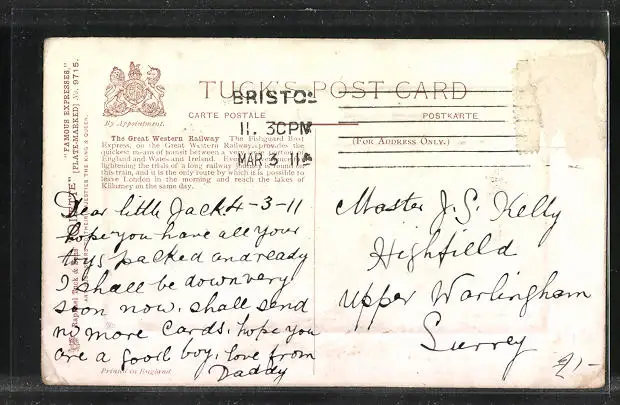 "FAMOUS EXPRESSES,"
[PLATE-MARKED] No. 9715.
By Appointment.
TUCK'S POST CARD
CARTE POSTALE
POSTKARTE
(FOR ADDRESS ONLY.)
BRISTOL
11. 30PM
MAR 3 11
The Great Western Railway The Fishguard Boat
Express, on the Great Western Railway, provides the
quickest means of transit between a very
England and Wales and Ireland.
lightening the trials of a long railway journey is found in
this train, and it is the only route by which it is possible to
leave London in the morning and reach the lakes of
Killarney on the same day.
Dear little Jack 4-3-11
hope you have all your
toys packed and ready
I shall be down very
soon now. shall send
no more cards. hope you
are a good boy. love from
Daddy
Master J. S. Kelly
Highfield
Upper Warlingham
Surrey
Printed in England